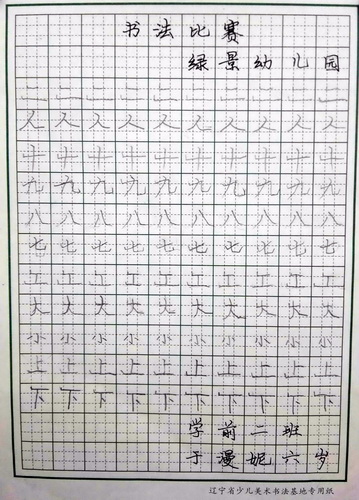 书法比赛
绿景幼儿园
二二二二二二二二二二
人人人人人人人人人人
九九九九九九九九九九
八八八八八八八八八八
七七七七七七七七七七
工工工工工工工工工工
大大大大大大大大大大
小小小小小小小小小小
上上上上上上上上上上
下下下下下下下下下下
学前二班
于漫妮六岁
辽宁省少儿美术书法基地专用纸